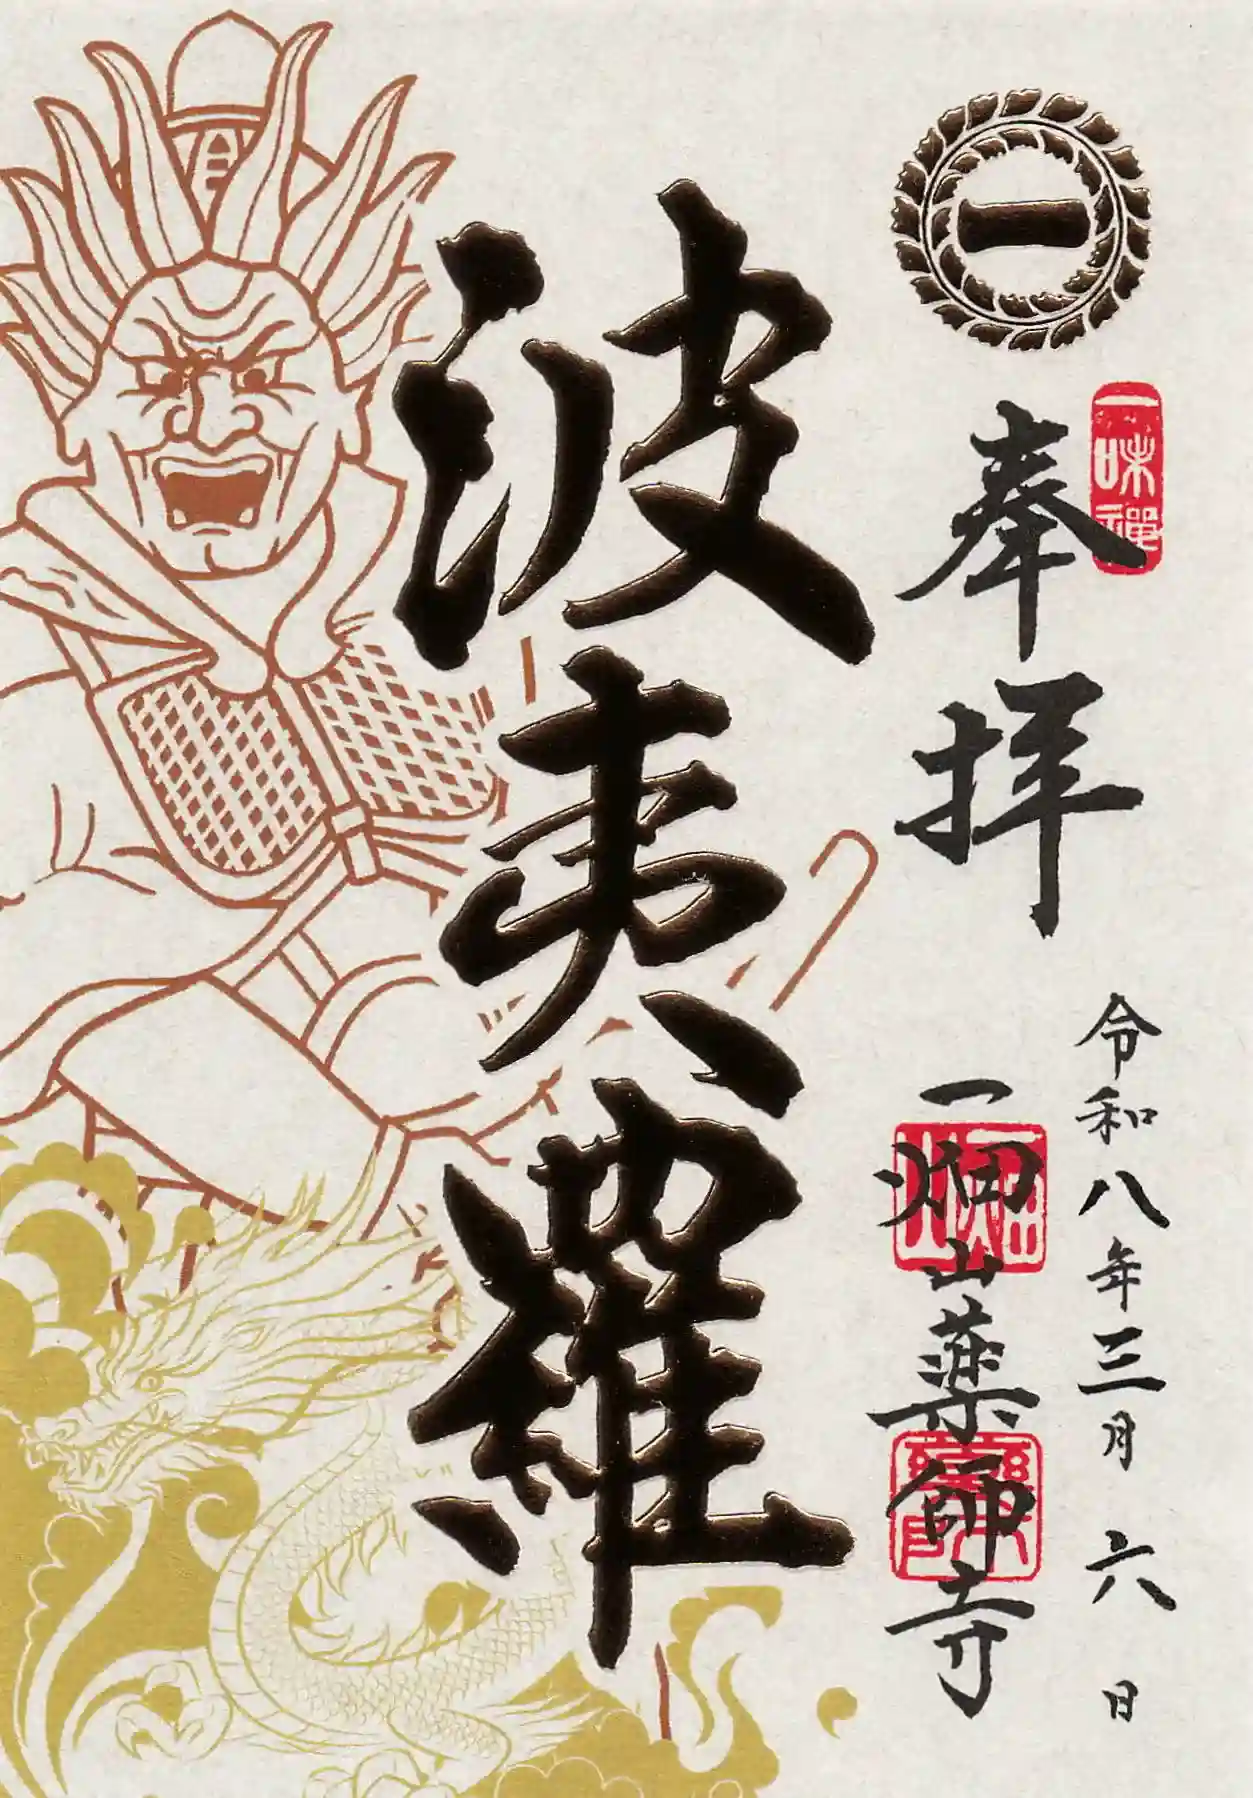 一
一味禅
奉拝
令和八年三月六日
一畑山薬師寺
波夷羅